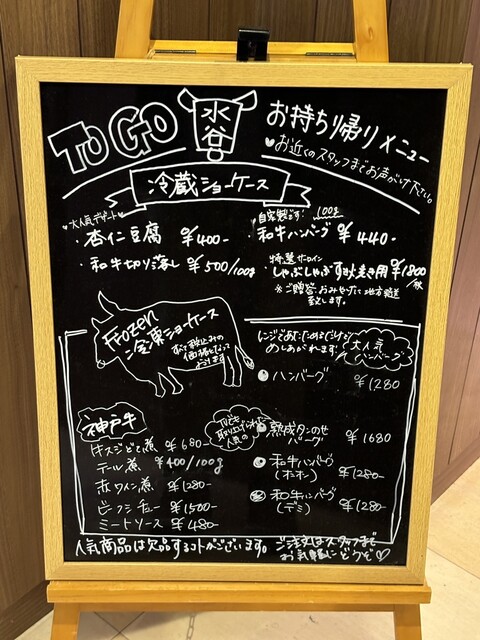 TO GO
水谷
お持ち帰りメニュー
♥お近くのスタッフまでお声がけ下さい。
冷蔵ショーケース
♥大人気デザート♥
・杏仁豆腐 ¥400-
・和牛切り落し ¥500/100g
自家製です! 100g
和牛ハンバーグ ¥440-
特選サーロイン
しゃぶしゃぶすき焼き用 ¥1800/枚
※ご贈答・おみやげに地方発送
致します。
Frozen
冷凍ショーケース
すべて税込みの
価格となって
おります
レンジであたためるだけで
めしあがれます!
大人気
ハンバーグ
ハンバーグ ¥1280
神戸牛
牛スジどて煮 ¥680-
テール煮 ¥400/100g
赤ワイン煮 ¥1280-
ビーフシチュー ¥1500-
ミートソース ¥480-
TVでも
取り上げられた
人気の
熟成タンのせ
バーグ ¥1680
和牛ハンバーグ
(オニオン) ¥1280-
和牛ハンバーグ
(デミ) ¥1280-
人気商品は欠品するコトがございます。
ご注文はスタッフまで
お気軽にどうぞ♡